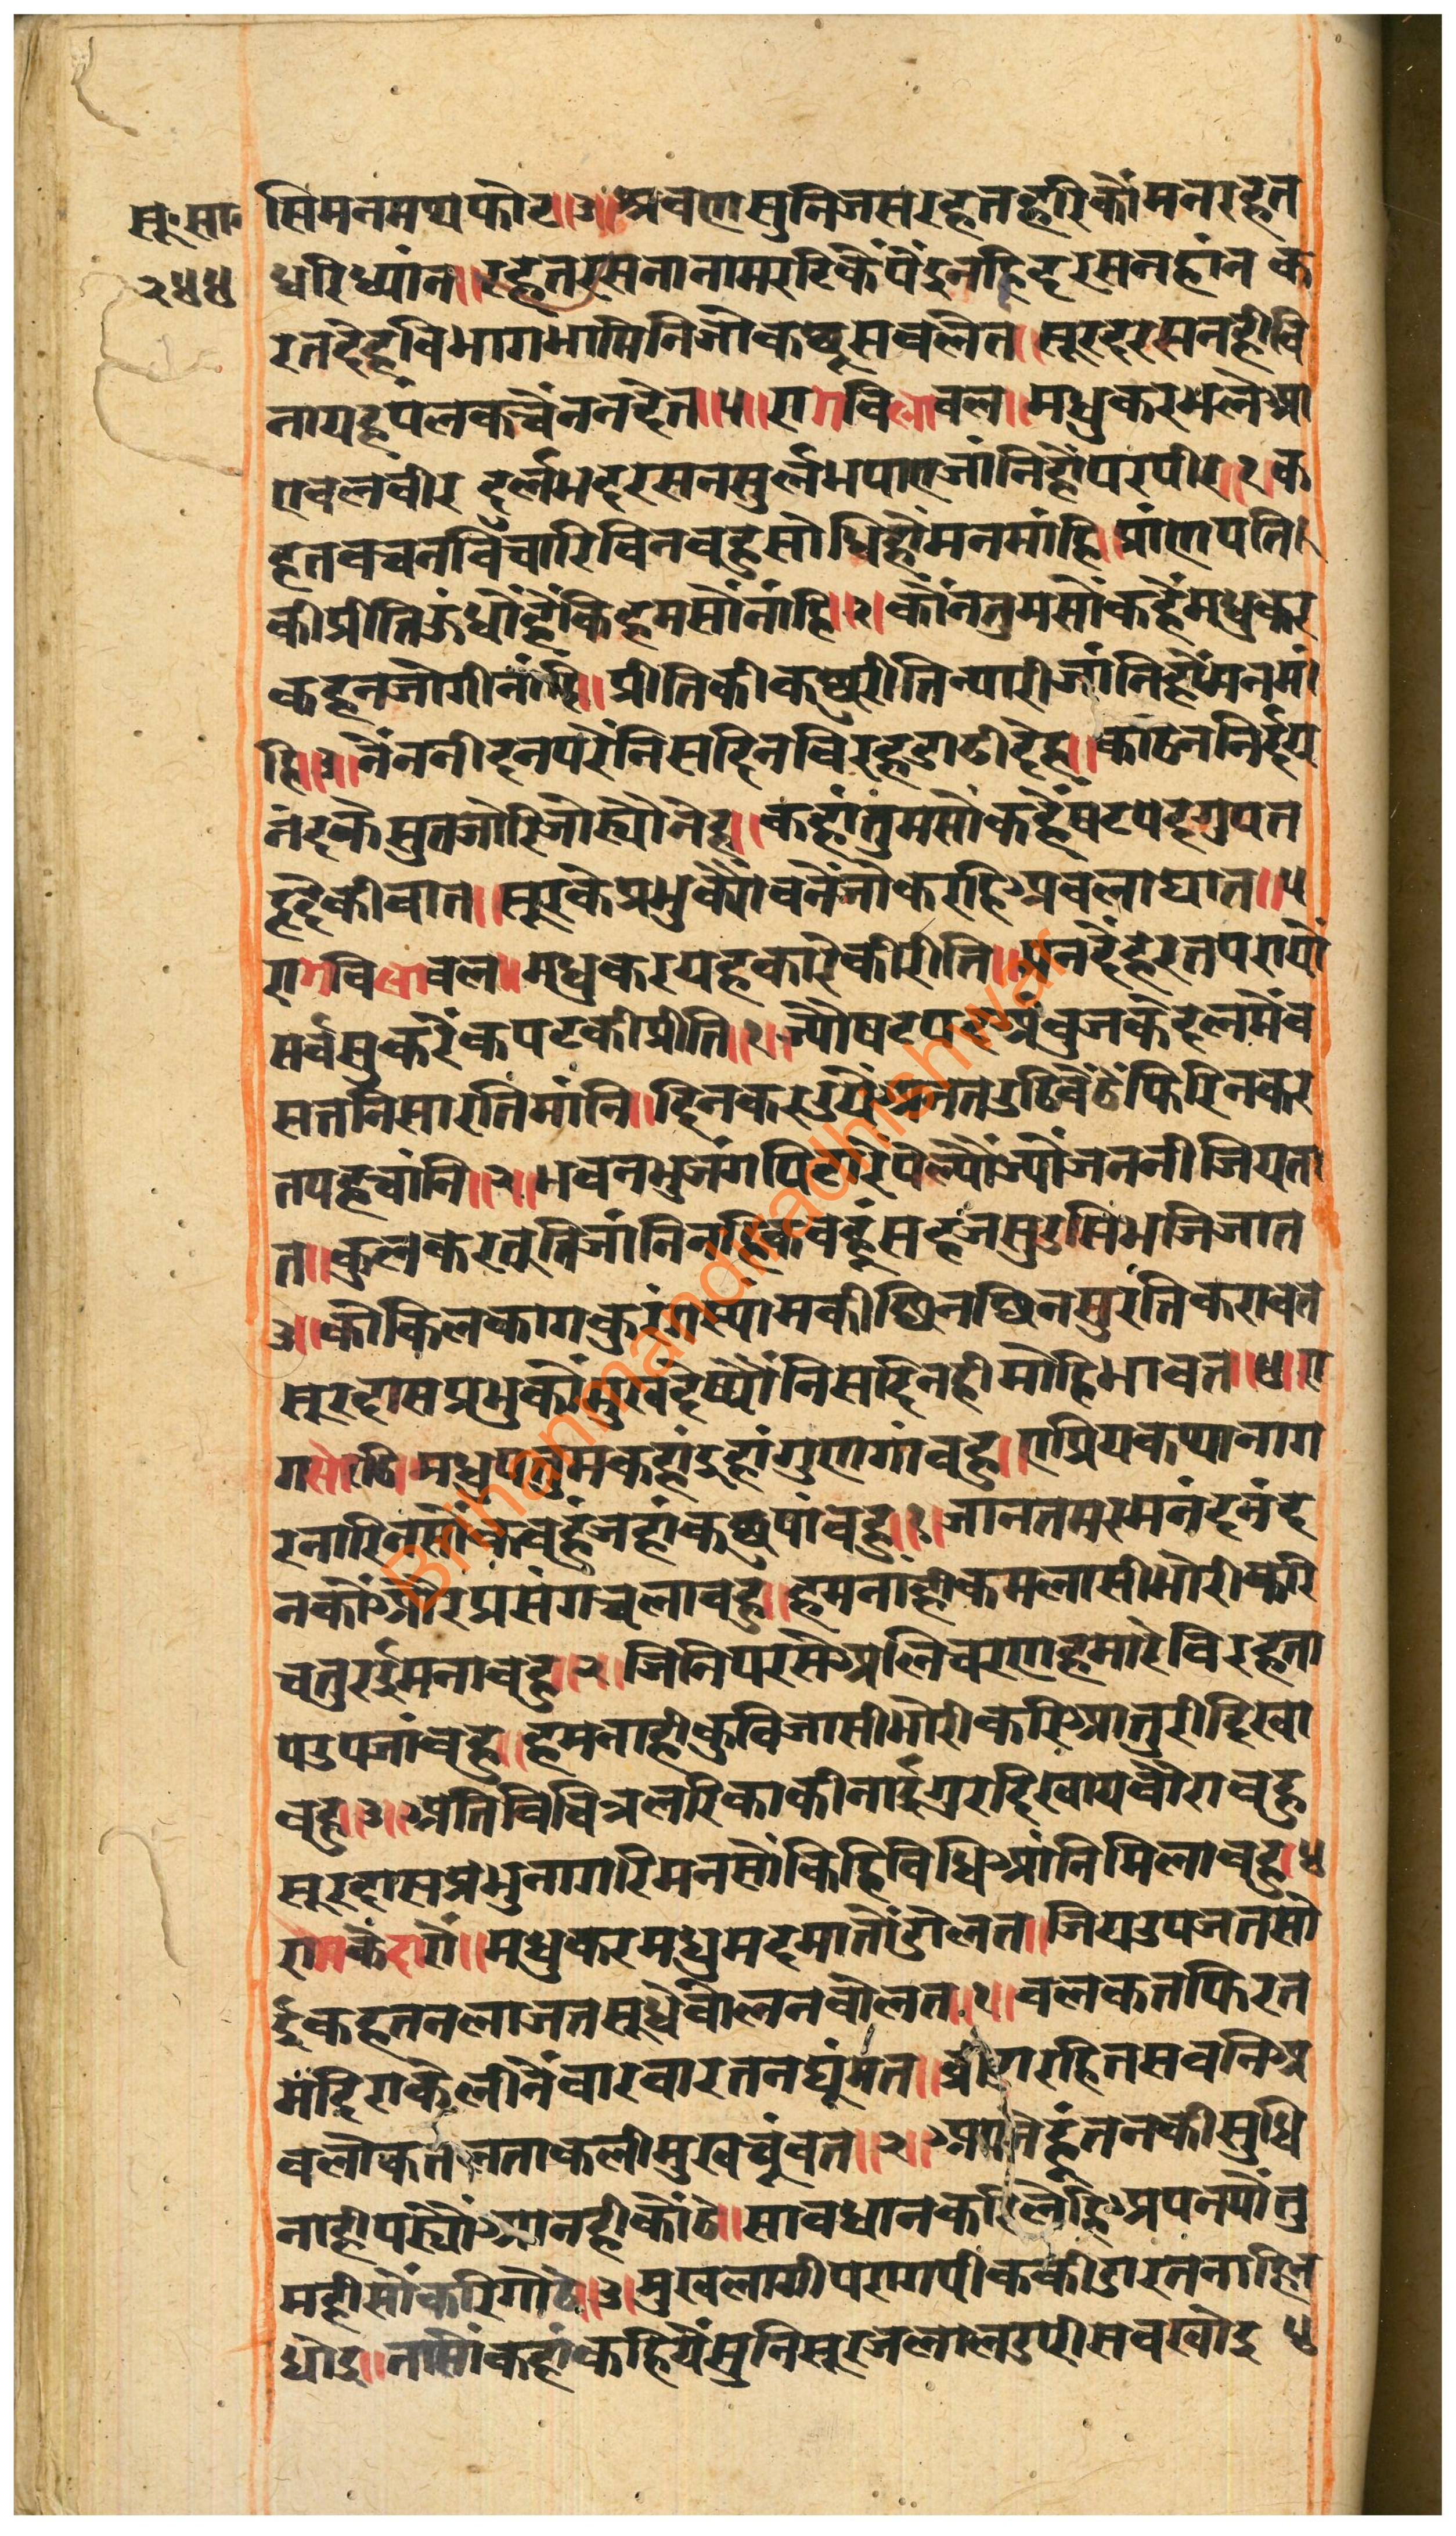 सू॰ सा॰
२५५
सिमनमष्यफोट॥३॥श्रवणसुनिजसरहतहरिकौंमनरहत
धरिध्यांन॥रहतरसनानामरटिकैंपैंइनहिदरसनहांनक
रतदेहविभागभामिनिजोकछूसबलेत॥सूरदरसनहीबि
नायहपंलकचैंननदेत॥५॥रागबिलावल॥मधुकरभलेआ
एबलबीर दुर्लभदरसनसुर्लभपाएजांनिहौंपरपीर॥१॥क
हतबचनबिचारिबिनबहुसोधिहौंमनमांहि॥प्रांणपति
कीप्रीतिऊधौंहैंकिहमसौंनांहि॥२॥कौंनतुमसौंकहैंमधुकर
कहनजोगीनांहि॥प्रीतिकीकछुरीतिन्यारीजांनिहौंमनमां
हि॥३॥नैंननींदनपरेंनिसदिनबिरहडाढीदेह॥कठिननिर्दय
नंदकेसुतजोरिजोख्योनेह॥कहांतुमसौंकहैंषटपदगुपत
हृदैकीबात॥सूरकेप्रभुक्यौंबनैंजोकरहिअबलाघात॥५
रागबिलावल॥मधुकरयहकारेकीरीति॥मनदैंहरतपरायौ
सर्बसुकरैंकपटकीप्रीति॥१॥ज्यौषटपदअंबुजकेदलमैंब
सतनिसारतिमांनि॥दिनकरउयैंअनतउठिबैठेंफिरिनकर
तपहचांनि॥२॥भवनभुजंगपिटारेपल्यौज्यौंजननीजियता
त॥कुलकरतूतिजांनिनहिकबहूंसहजसुडसिभजिजात
३॥कोकिलकागकुरंगस्यांमकीछिनछिनसुरंतिकरावत
सूरदासप्रभुकौमुखदेष्यौंनिसदिनहीमोहिभावत॥५॥रा
गसोरठि॥मधुपतुमकहांइहांगुणगांवहु॥एप्रियकथानाग
रनारिनसौंकबहुंजहांकछुपांवहु॥१॥जानतमरमनंदनंद
नकौऔरप्रसंगचलावहु॥हमनांहीकमलासीभोरीकरि
चतुरईमनावहु॥२॥जिनिपरसेअलिचरणहमारेबिरहता
पउपजांवहु॥हमनाहीकुबिजासीभोरीकरिआतुरीदिखा
वहु॥३॥अतिबिचित्रलरिकाकीनाईगुरदिखायबौरावहु
सूरदासप्रभुनागारिमनसौंकिहिबिधिआंनिमिलावहु॥५
रागकेदारो॥मधुकरमधुमदमातौडोलत॥जियउपजतसो
ईकहतनलाजतसूधेबोलनबोलत॥१॥बलकतफिरत
मंदिराकेलीनैंबारबारतनघूंमत॥ रहितसबनिअ
बलोकतलताकलीमुखचुंबत॥२॥ तनकीसुधि
नाहीपख्योंआनहीकौठै॥सावधानकरिलेहिअपनपौतु
महीसौंकरिगोठे॥३॥मुखलागीपरागपीककीडारतनाहिन
धोइ॥तासौंकहांकहियैंसुनिसूरजलालडपीसबखोइ ५